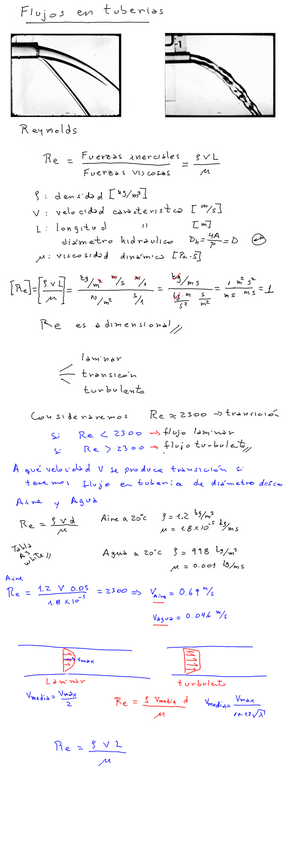 Flujos en tuberías
Reynolds
Re = Fuerzas inerciales / Fuerzas viscosas = ρ V L / μ
ρ: densidad [kg/m³]
V: velocidad caracteristica [m/s]
L: longitud " [m]
diámetro hidráulico D_h = 4A/P = D
μ: viscosidad dinámica [Pa·s]
Re es adimensional //
laminar
transición
turbulento
Consideraremos Re ≈ 2300 → transición
Si Re < 2300 → flujo laminar
Si Re > 2300 → flujo turbulento //
A qué velocidad V se produce transición si
tenemos flujo en tubería de diámetro
Aire y Agua
Re = ρ V d / μ Aire a 20°C ρ = 1.2 kg/m³
μ = 1.8×10⁻⁵ kg/ms
Tabla
White //
Agua a 20°C ρ = 998 kg/m³
μ = 0.001 kg/ms
Aire
Re = 1.2 V 0.05 / 1.8×10⁻⁵ = 2300 ⇒ V_Aire = 0.69 m/s
V_agua = 0.046 m/s
Vmax
Laminar turbulento
Vmedia = Vmax / 2 Re = ρ Vmedia d / μ
Re = ρ V L / μ